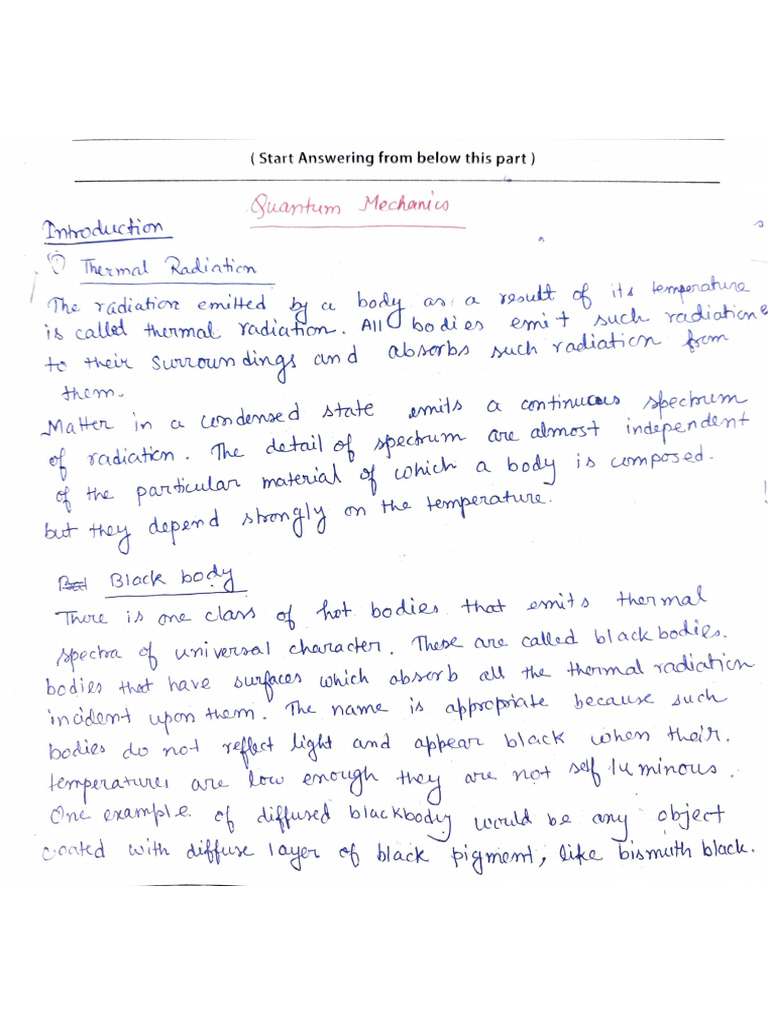 ( Start Answering from below this part )
Quantum Mechanics
Introduction
① Thermal Radiation
The radiation emitted by a body as a result of its temperature
is called thermal radiation. All bodies emit such radiation
to their surroundings and absorbs such radiation from
them.
Matter in a condensed state emits a continuous spectrum
of radiation. The detail of spectrum are almost independent
of the particular material of which a body is composed.
but they depend strongly on the temperature.
Black body
There is one class of hot bodies that emits thermal
spectra of universal character. These are called blackbodies.
bodies that have surfaces which absorb all the thermal radiation
incident upon them. The name is appropriate because such
bodies do not reflect light and appear black when their.
temperatures are low enough they are not self luminous.
One example of diffused blackbody would be any object
coated with diffuse layer of black pigment, like bismuth black.